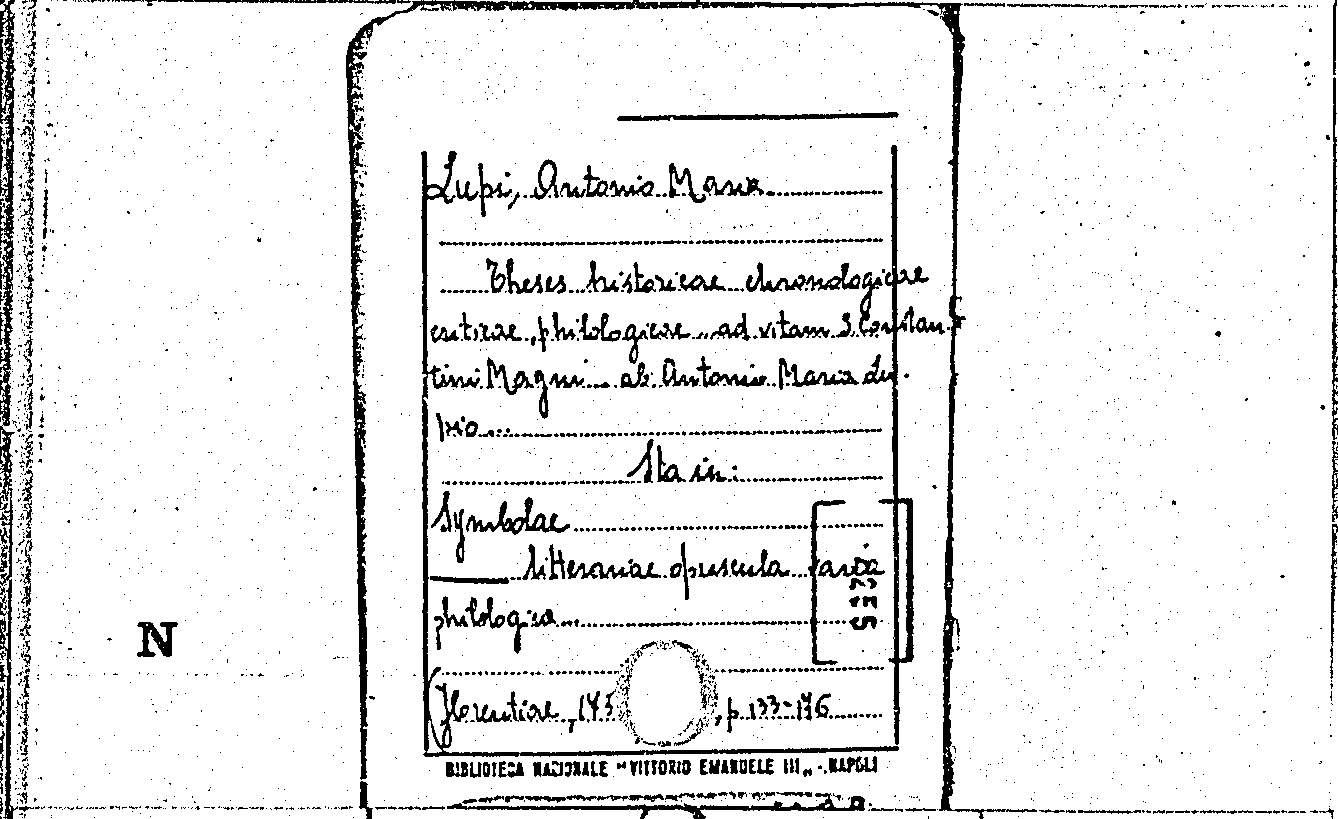 Lupi, Antonio Maria
Theses historicae chronologicae
criticae, philologicae ad vitam S. Constan
tini Magni ab Antonio Maria Lu
pio...
Sta in:
Symbolae
litterariae opuscula varia
philologica...
(Florentiae, 175 , p. 133-176
BIBLIOTECA NAZIONALE "VITTORIO EMANUELE III„ - NAPOLI
N